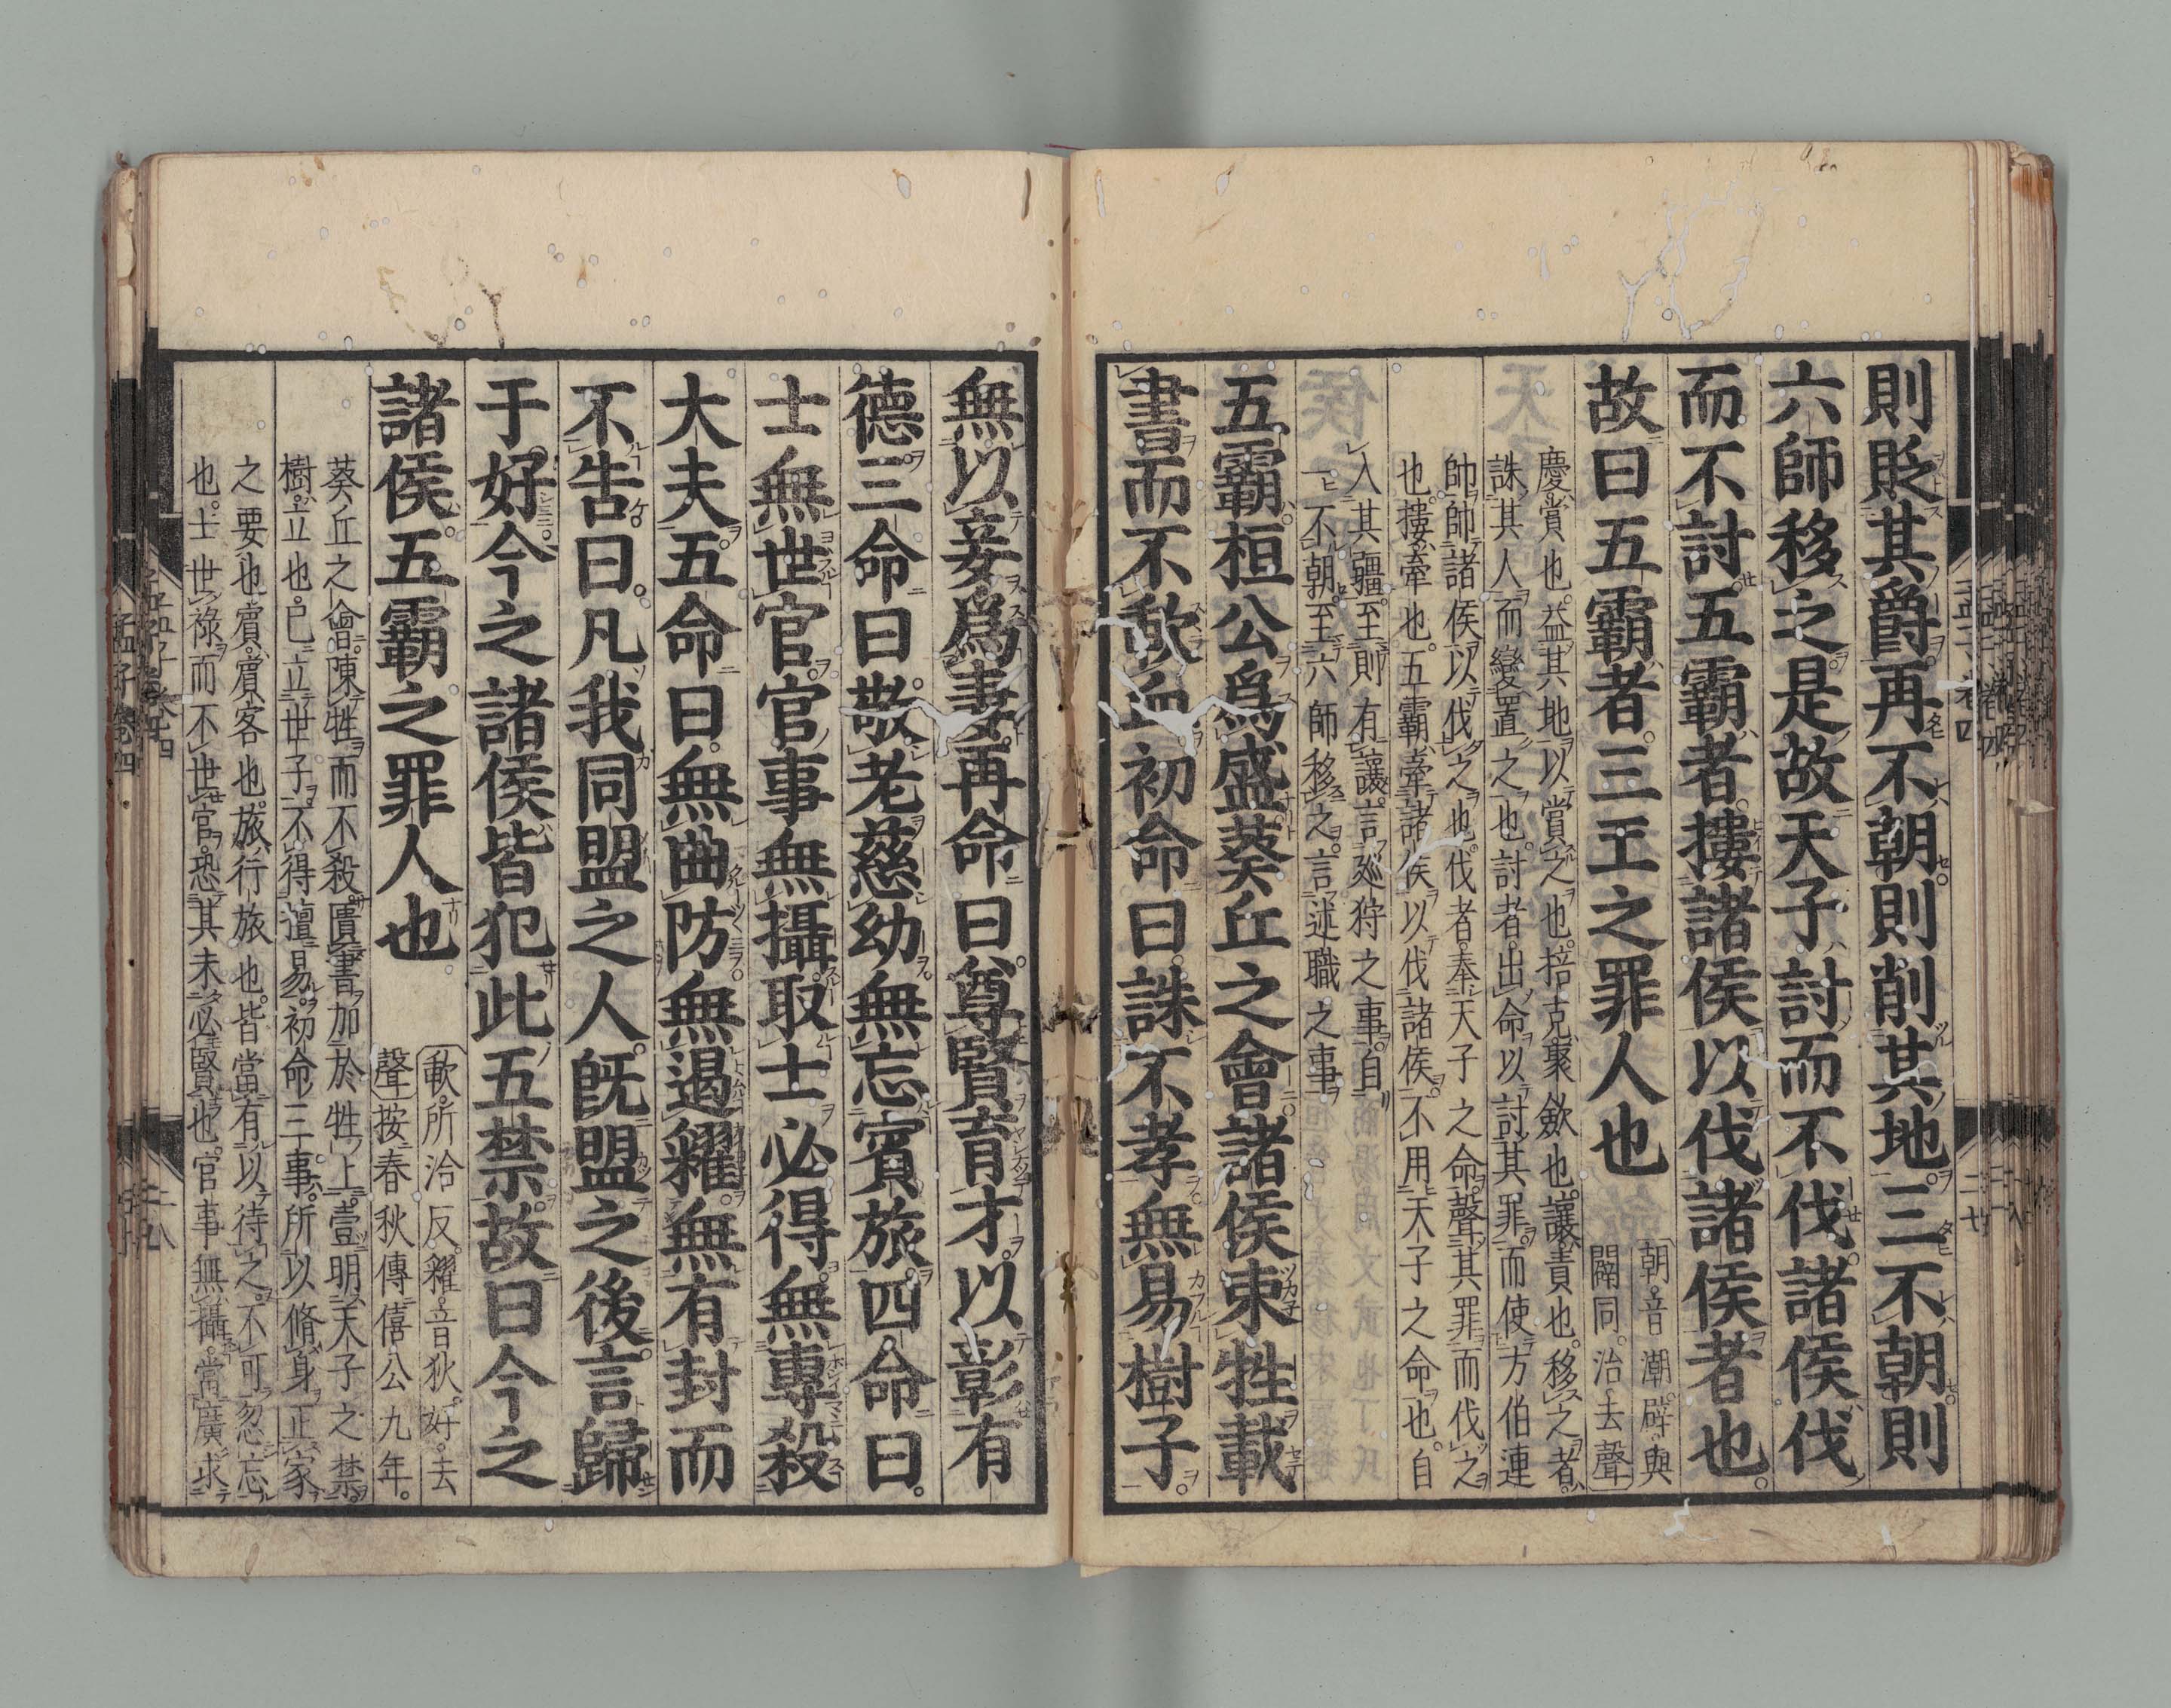 則貶其爵再不朝則削其地三不朝則
六師移之是故天子討而不伐諸侯伐
而不討五霸者摟諸侯以伐諸侯者也
故曰五霸者三王之罪人也
朝音潮辟與
闢同治去聲
慶賞也益其地以賞之也掊克聚斂也讓責也移之者
誅其人而變置之也討者出命以討其罪而使方伯連
帥帥諸侯以伐之也伐者奉天子之命聲其罪而伐之
也摟牽也五霸牽諸侯以伐諸侯不用天子之命也自
入其疆至則有讓言巡狩之事自
一不朝至六師移之言述職之事
五霸桓公爲盛葵丘之會諸侯束牲載
書而不歃血初命曰誅不孝無易樹子
無以妾爲妻再命曰尊賢育才以彰有
德三命曰敬老慈幼無忘賓旅四命曰
士無世官官事無攝取士必得無專殺
大夫五命曰無曲防無遏糴無有封而
不告曰凡我同盟之人既盟之後言歸
于好今之諸侯皆犯此五禁故曰今之
諸侯五霸之罪人也
歃所洽反糴音狄好去
聲按春秋傳僖公九年
葵丘之會陳牲而不殺讀書加於牲上壹明天子之禁
樹立也已立世子不得擅易初命三事所以脩身正家
之要也賓賓客也旅行旅也皆當有以待之不可忽忘
也士世祿而不世官恐其未必賢也官事無攝當廣求